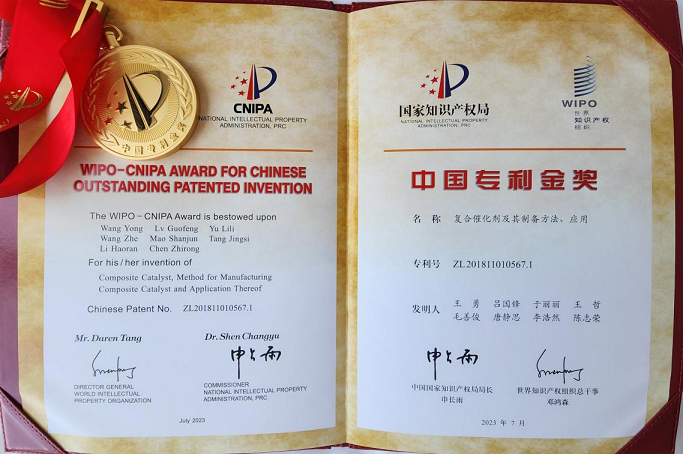 中国专利金奖
CNIPA
NATIONAL INTELLECTUAL PROPERTY
ADMINISTRATION, PRC
WIPO-CNIPA AWARD FOR CHINESE
OUTSTANDING PATENTED INVENTION
The WIPO - CNIPA Award is bestowed upon
Wang Yong Lv Guofeng Yu Lili
Wang Zhe Mao Shanjun Tang Jingsi
Li Haoran Chen Zhirong
For his / her invention of
Composite Catalyst, Method for Manufacturing
Composite Catalyst and Application Thereof
Chinese Patent No. ZL201811010567.1
Mr. Daren Tang
Dr. Shen Changyu
申长雨
DIRECTOR GENERAL
WORLD INTELLECTUAL
PROPERTY ORGANIZATION
COMMISSIONER
NATIONAL INTELLECTUAL PROPERTY
ADMINISTRATION, PRC
July 2023
国家知识产权局
NATIONAL INTELLECTUAL PROPERTY
ADMINISTRATION, PRC
WIPO
世界
知识产权
组织
中国专利金奖
名称 复合催化剂及其制备方法、应用
专利号 ZL201811010567.1
发明人 王勇 吕国锋 于丽丽 王哲
毛善俊 唐静思 李浩然 陈志荣
申长雨
中国国家知识产权局局长
申长雨
世界知识产权组织总干事
邓鸿森
2023 年 7 月